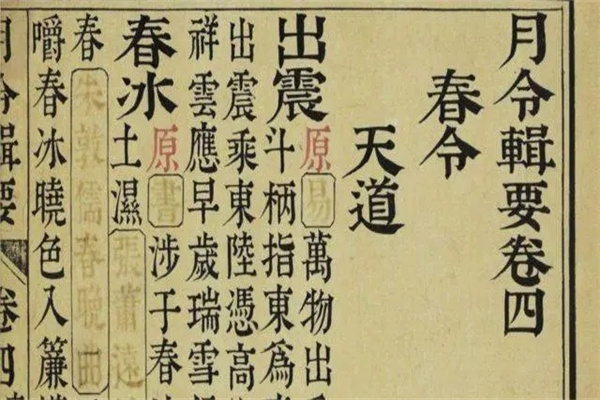 月令輯要卷四
春令
天道
出震
原易萬物出
斗柄指東爲
出震乘東陸憑高
祥雲應早歲瑞雪
春冰
原書涉于春
土濕張蕭遠
春朱敦儒春曉曲
嚼春冰曉色入簾
月令輯要 卷四